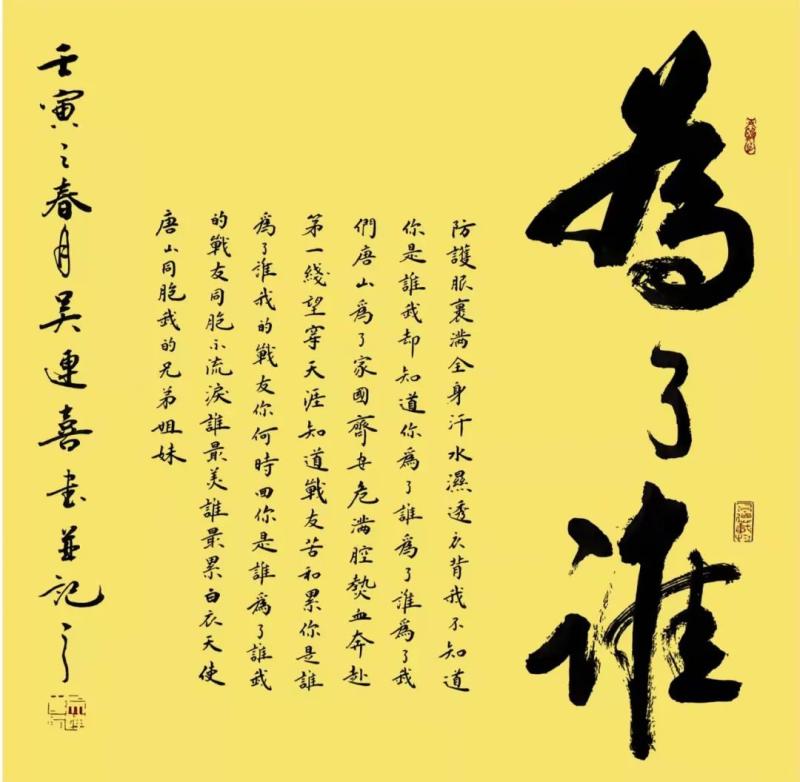 為了誰
防護服裹满全身汗水濕透衣背我不知道
你是誰我却知道你為了誰為了誰為了我
們唐山為了家國齊安危满腔熱血奔赴
第一綫望穿天涯知道戰友苦和累你是誰
為了誰我的戰友你何時回你是誰為了誰我
的戰友同胞不流淚誰最美誰最累白衣天使
唐山同胞我的兄弟姐妹
壬寅之春月吴連喜书并記之